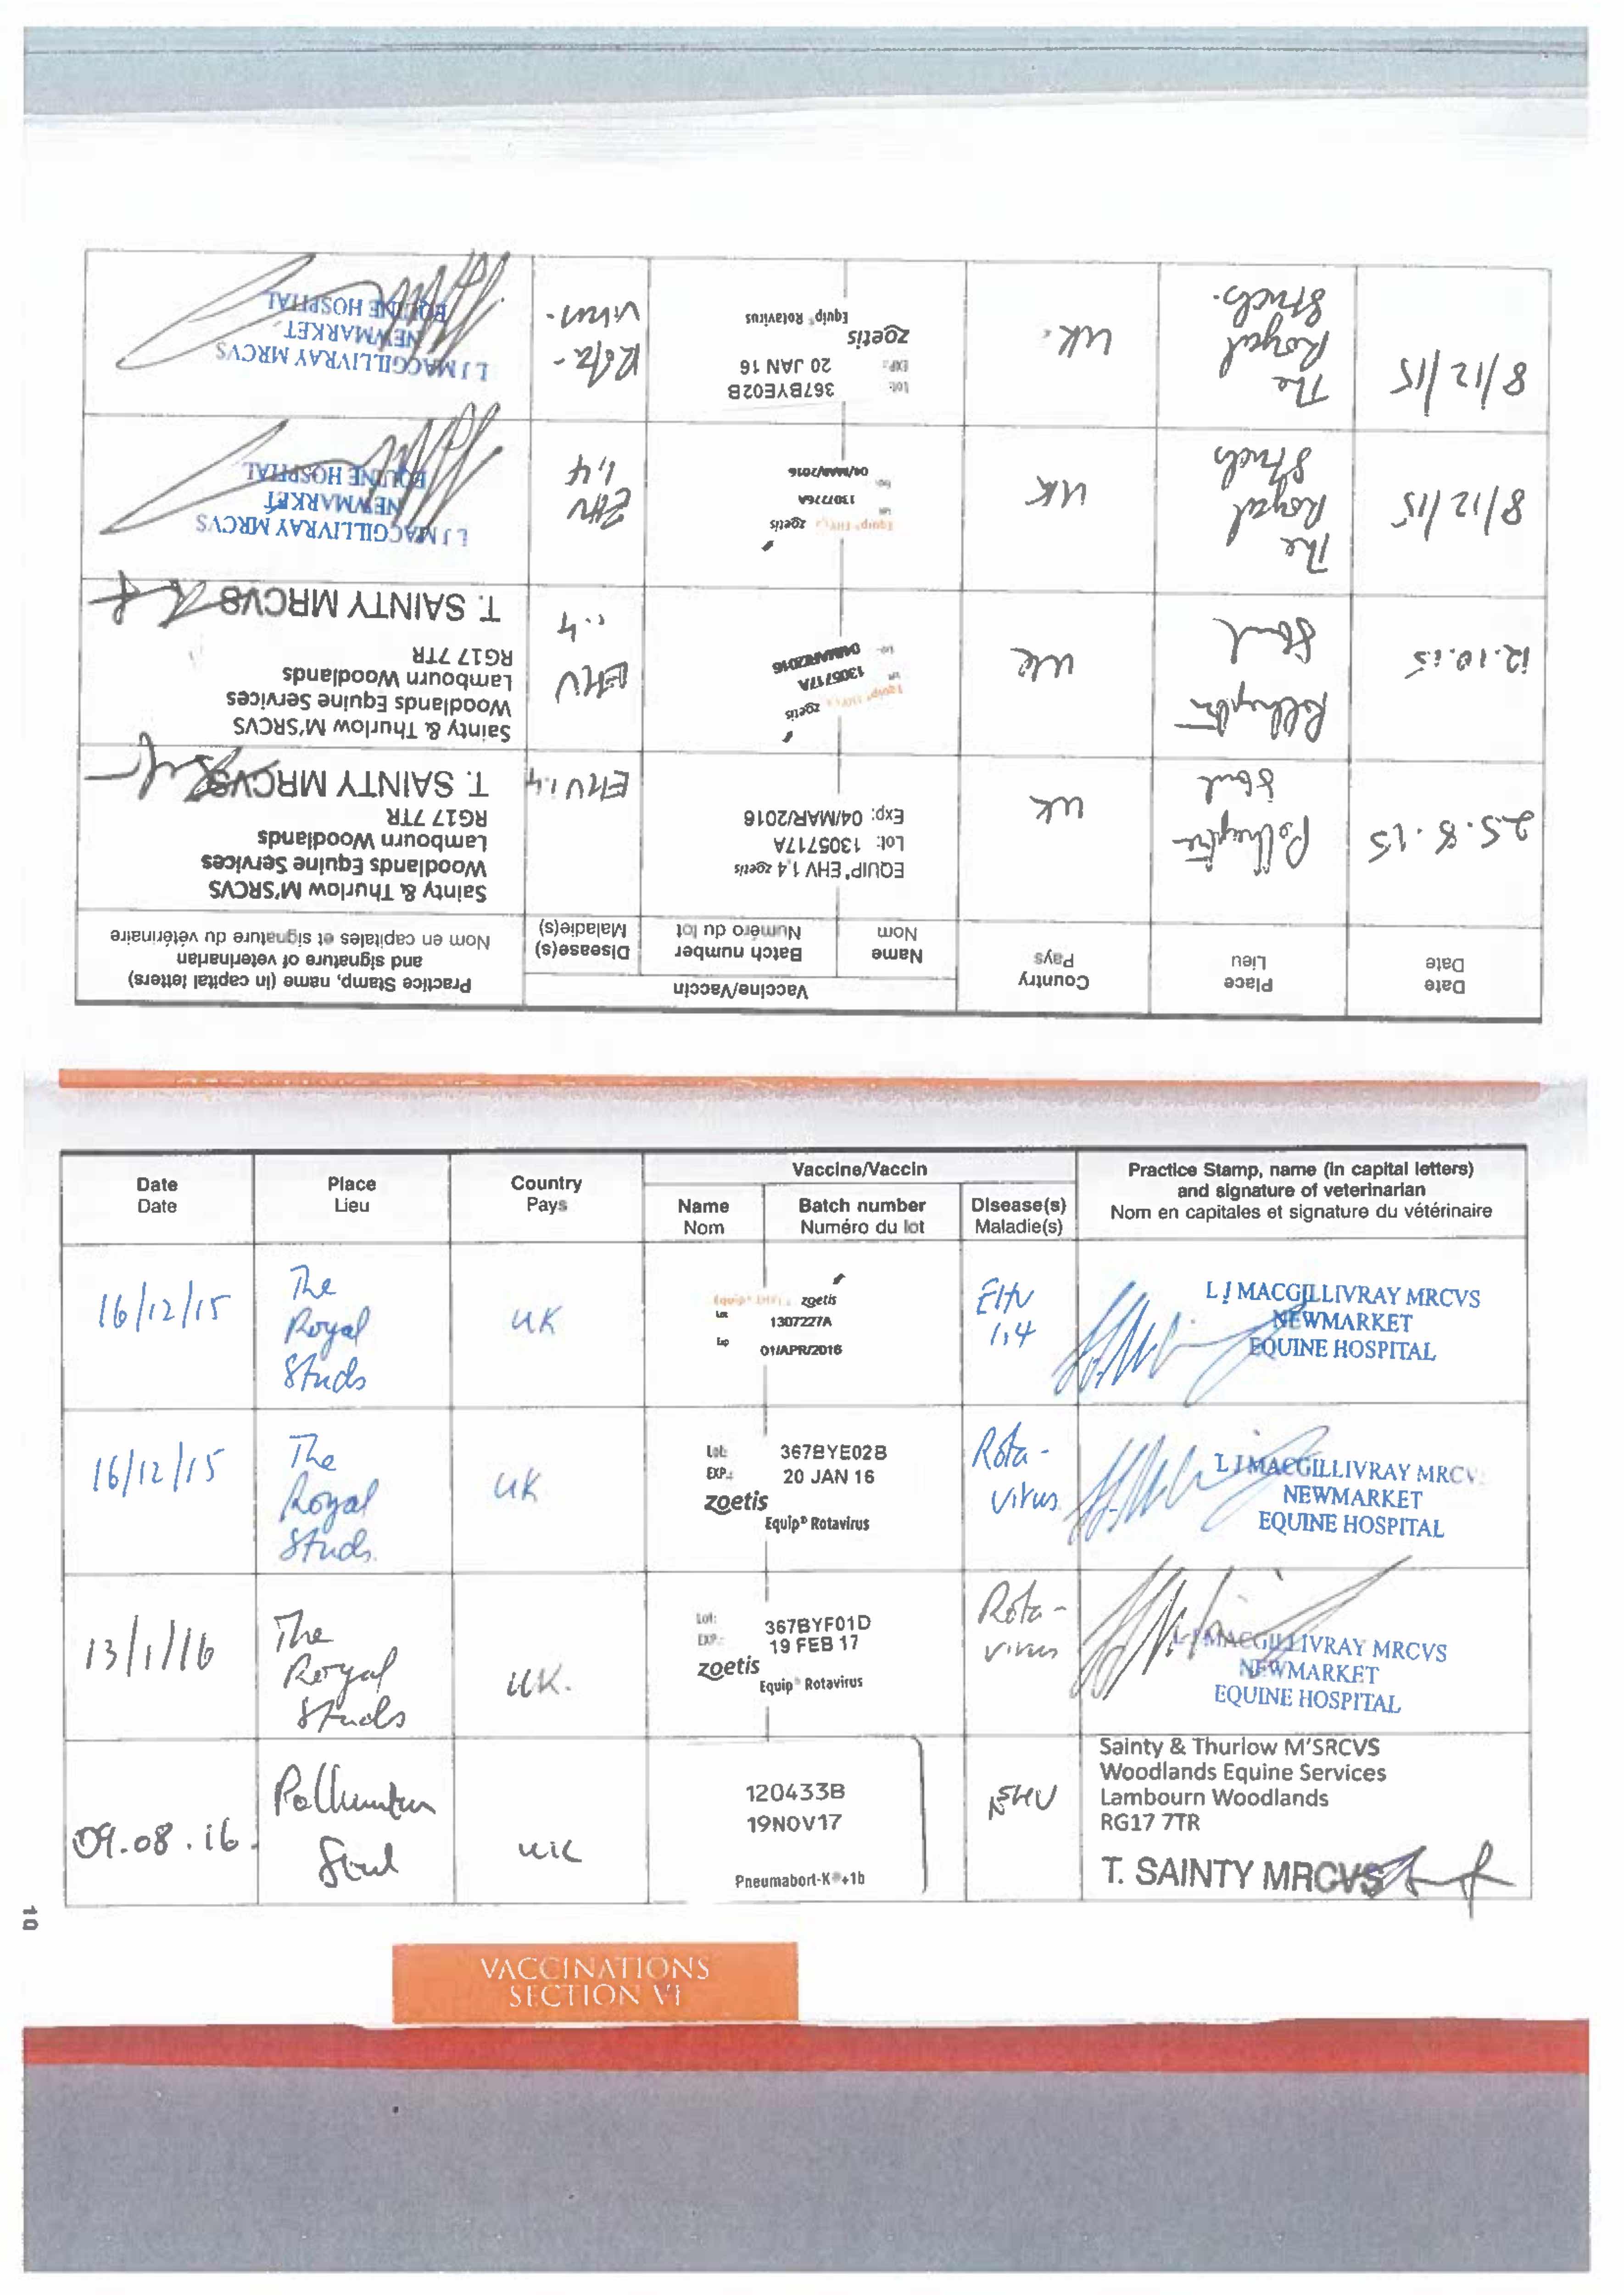 Date
Date
Place
Lieu
Country
Pays
Vaccine/Vaccin
Name
Nom
Batch number
Numéro du lot
Disease(s)
Maladie(s)
Practice Stamp, name (in capital letters)
and signature of veterinarian
Nom en capitales et signature du vétérinaire
25.8.15
Polhampton
Stud
UK
EQUIP® EHV 1,4 zoetis
Lot: 130571 7A
Exp: 04/MAR/2016
EHV 1.4
Sainty & Thurlow M'SRCVS
Woodlands Equine Services
Lambourn Woodlands
RG17 7TR
T. SAINTY MRCVS
12.10.15
Polhampton
Stud
UK
Equip® EHV1,4 zoetis
1305717A
04/MAR/2016
EHV
1.4
Sainty & Thurlow M'SRCVS
Woodlands Equine Services
Lambourn Woodlands
RG17 7TR
T. SAINTY MRCVS
8/12/15
The
Royal
Studs
UK
Equip® EHV1,4 zoetis
04/MAR/2016
EHV
1,4
L J MACGILLIVRAY MRCVS
NEWMARKET
EQUINE HOSPITAL
8/12/15
The
Royal
Studs.
UK.
Lot: 367BYE02B
EXP.: 20 JAN 16
zoetis
Equip® Rotavirus
Rota-
virus.
L J MACGILLIVRAY MRCVS
NEWMARKET
EQUINE HOSPITAL
Date
Date
Place
Lieu
Country
Pays
Vaccine/Vaccin
Name
Nom
Batch number
Numéro du lot
Disease(s)
Maladie(s)
Practice Stamp, name (in capital letters)
and signature of veterinarian
Nom en capitales et signature du vétérinaire
16/12/15
The
Royal
Studs
UK
Equip® EHV1,4 zoetis
Lot 1307227A
Exp 01/APR/2016
EHV
1,4
L J MACGILLIVRAY MRCVS
NEWMARKET
EQUINE HOSPITAL
16/12/15
The
Royal
Studs.
UK
Lot: 367BYE02B
EXP.: 20 JAN 16
zoetis
Equip® Rotavirus
Rota-
virus
L J MACGILLIVRAY MRCVS
NEWMARKET
EQUINE HOSPITAL
13/1/16
The
Royal
Studs
UK.
Lot: 367BYF01D
EXP.: 19 FEB 17
zoetis
Equip® Rotavirus
Rota-
virus
L J MACGILLIVRAY MRCVS
NEWMARKET
EQUINE HOSPITAL
09.08.16.
Polhampton
Stud
UK
120433B
19NOV17
Pneumabort-K®+1b
EHV
Sainty & Thurlow M'SRCVS
Woodlands Equine Services
Lambourn Woodlands
RG17 7TR
T. SAINTY MRCVS
10
VACCINATIONS
SECTION VI